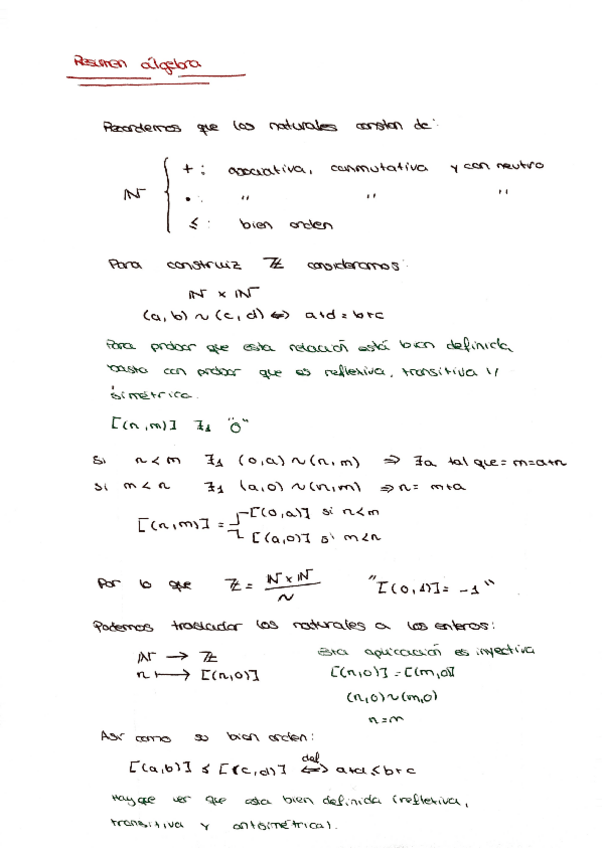 Resumen álgebra
Recordemos que los naturales constan de:
+ : asociativa, conmutativa y con neutro
ℕ { • : " " "
≤ : bien orden
Para construir ℤ consideramos:
ℕ × ℕ
(a,b) ~ (c,d) ⇔ a+d = b+c
Para probar que esta relación está bien definida
basta con probar que es reflexiva, transitiva y
simétrica.
[(n,m)] ∃₁ "0"
Si n<m ∃₁ (0,a) ~ (n,m) ⇒ ∃a tal que = m=a+n
Si m<n ∃₁ (a,0) ~ (n,m) ⇒ n= m+a
[(n,m)] = { [(0,a)] si n<m
[(a,0)] si m<n
Por lo que ℤ = ℕ×ℕ / ~ "[(0,1)] = -1"
Podemos trasladar los naturales a los enteros:
ℕ → ℤ Esta aplicación es inyectiva
n ↦ [(n,0)] [(n,0)] = [(m,0)]
(n,0)~(m,0)
n=m
Así como su bien orden:
[(a,b)] ≤ [(c,d)] ⇔ def a+d ≤ b+c
Hay que ver que esta bien definida (reflexiva,
transitiva y antisimétrica).